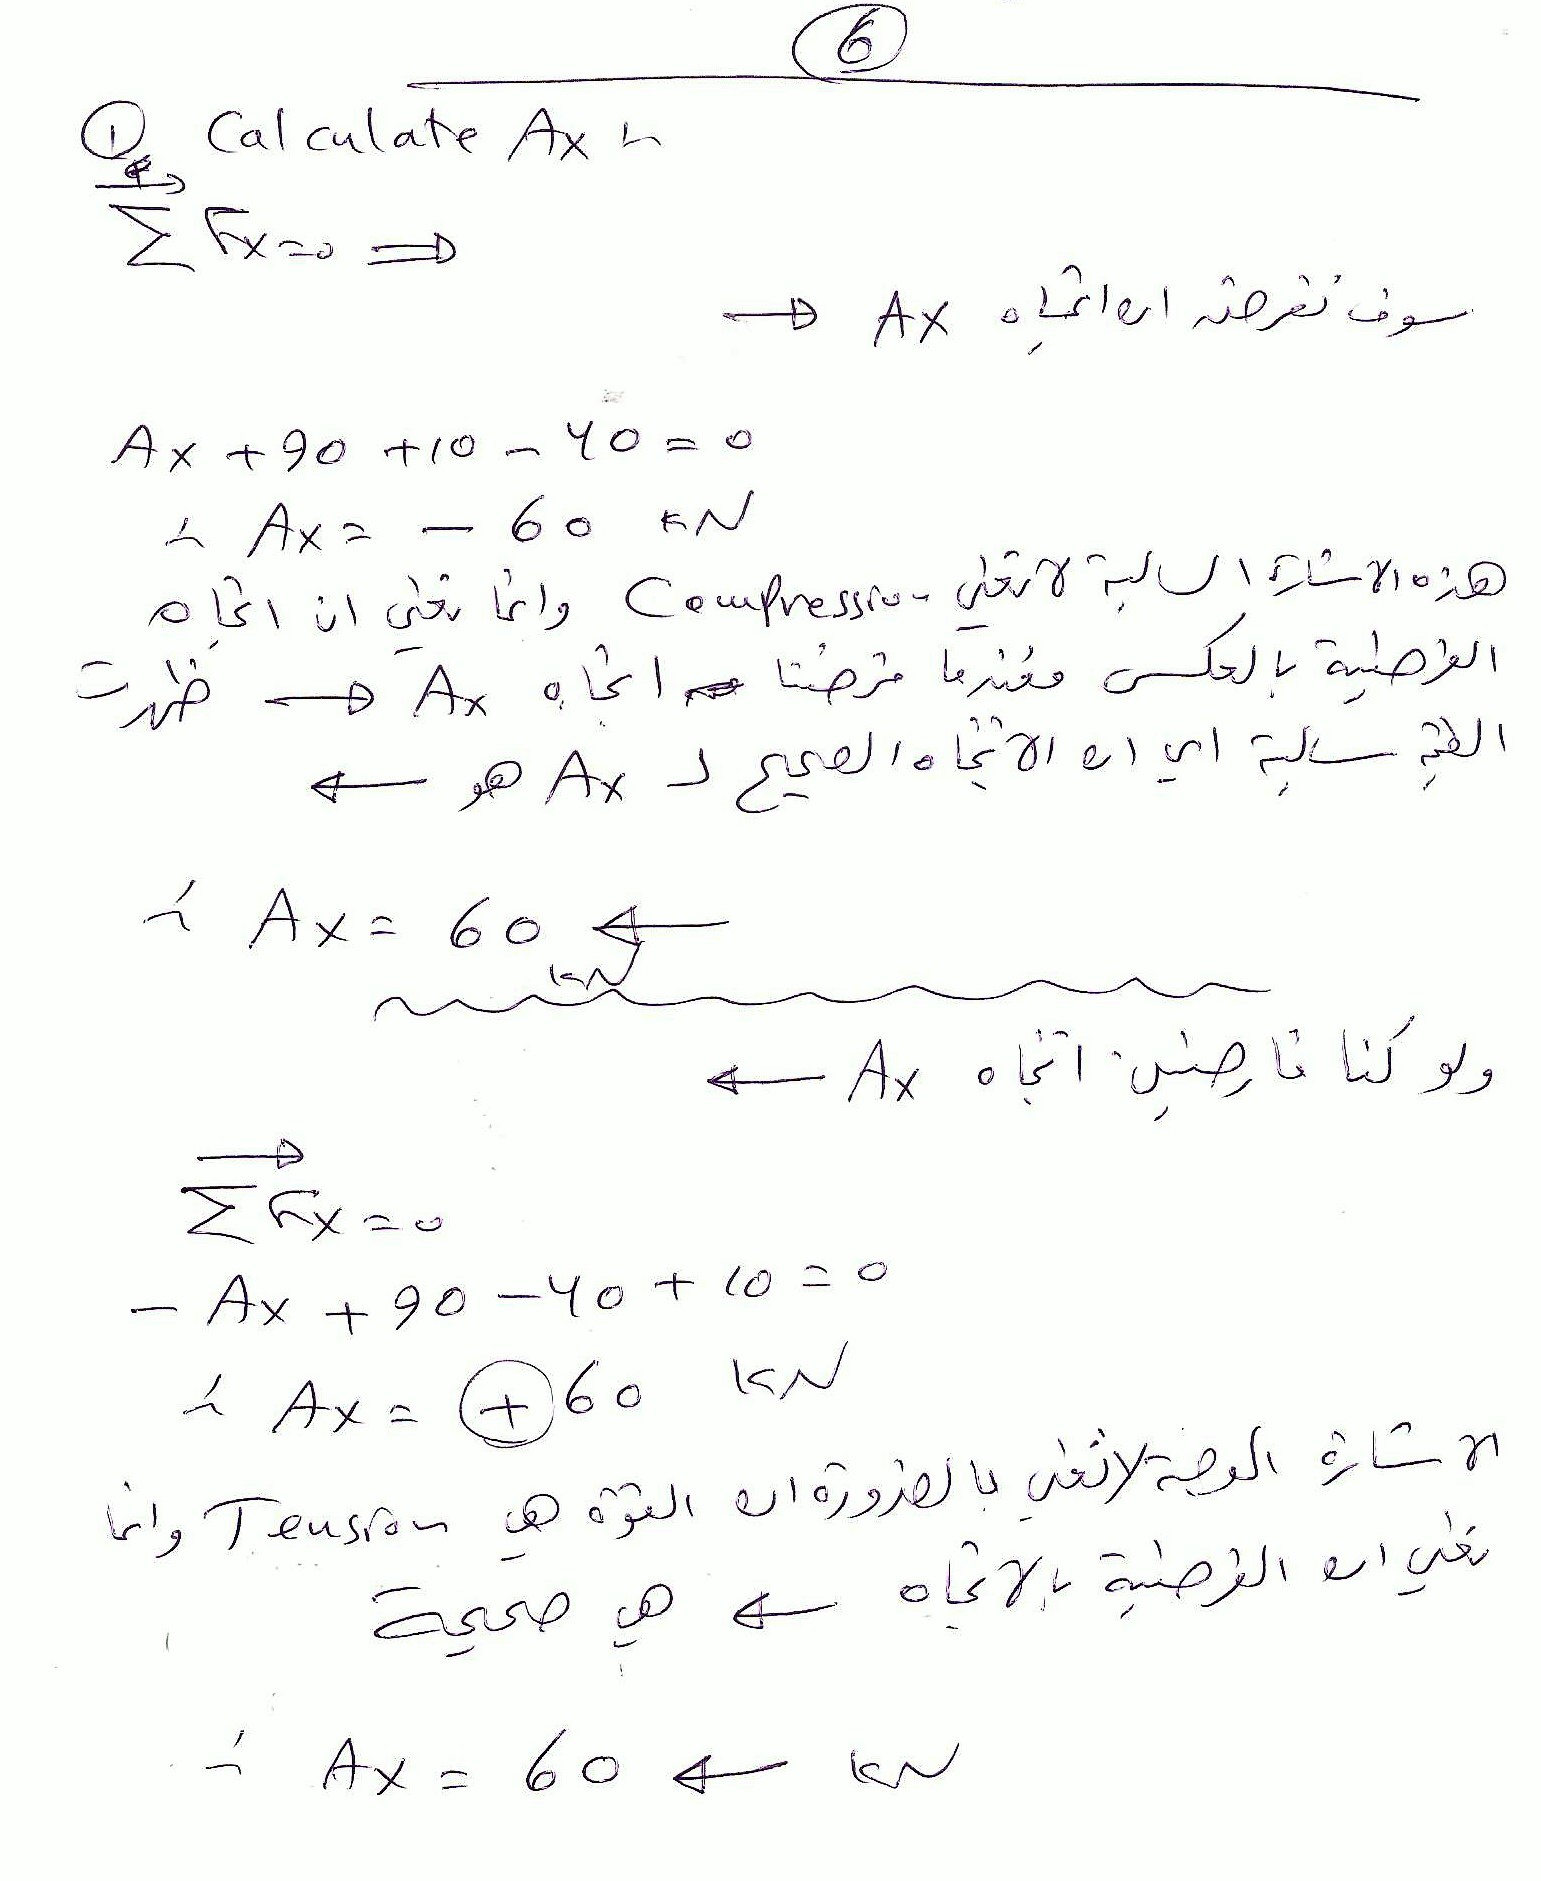 6
① Calculate Ax :-
→+
∑ Fx=0 ⇒
سوف نفرض ان اتجاه Ax →
Ax +90 +10 - 40 = 0
∴ Ax = - 60 KN
هذه الاشارة السالبة لا تعني Compression وانما تعني ان اتجاه
الفرضية بالعكس فعندما فرضنا اتجاه Ax → ظهرت
القيمة سالبة اي ان الاتجاه الصحيح لـ Ax هو ←
∴ Ax = 60 ←
KN
ولو كنا فارضين اتجاه Ax ←
→
∑ Fx = 0
- Ax + 90 - 40 + 10 = 0
∴ Ax = + 60 KN
الاشارة الموجبة لا تعني بالضرورة ان القوة هي Tension وانما
تعني ان الفرضية بالاتجاه ← هي صحيحة
∴ Ax = 60 ← KN